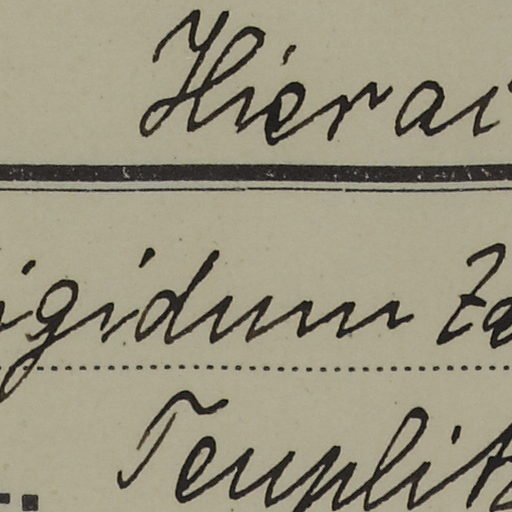 Hierac
igidum Za
Teuplitz